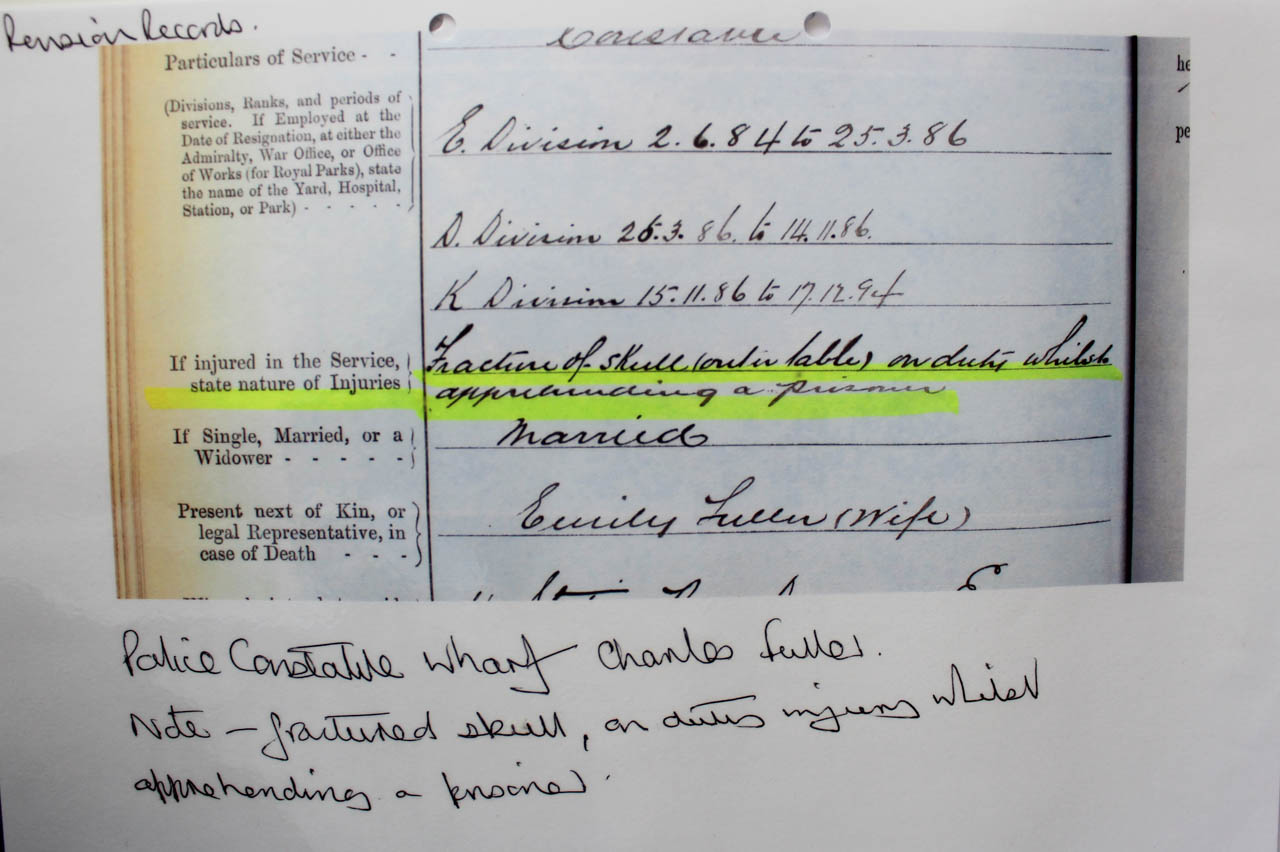 Pension Records.
Constable
Particulars of Service - -
(Divisions, Ranks, and periods of
service. If Employed at the
Date of Resignation, at either the
Admiralty, War Office, or Office
of Works (for Royal Parks), state
the name of the Yard, Hospital,
Station, or Park) - - - - -
E. Division 2.6.84 to 25.3.86
D. Division 26.3.86. to 14.11.86.
K Division 15.11.86 to 17.12.94
If injured in the Service,
state nature of Injuries
Fracture of skull (outer table) on duty whilst
apprehending a prisoner
If Single, Married, or a
Widower - - - - -
Married
Present next of Kin, or
legal Representative, in
case of Death - - -
Emily Fuller (Wife)
he
pe
Police Constable Wharf Charles Fuller.
Note - fractured skull, on duty injury whilst
apprehending a prisoner.